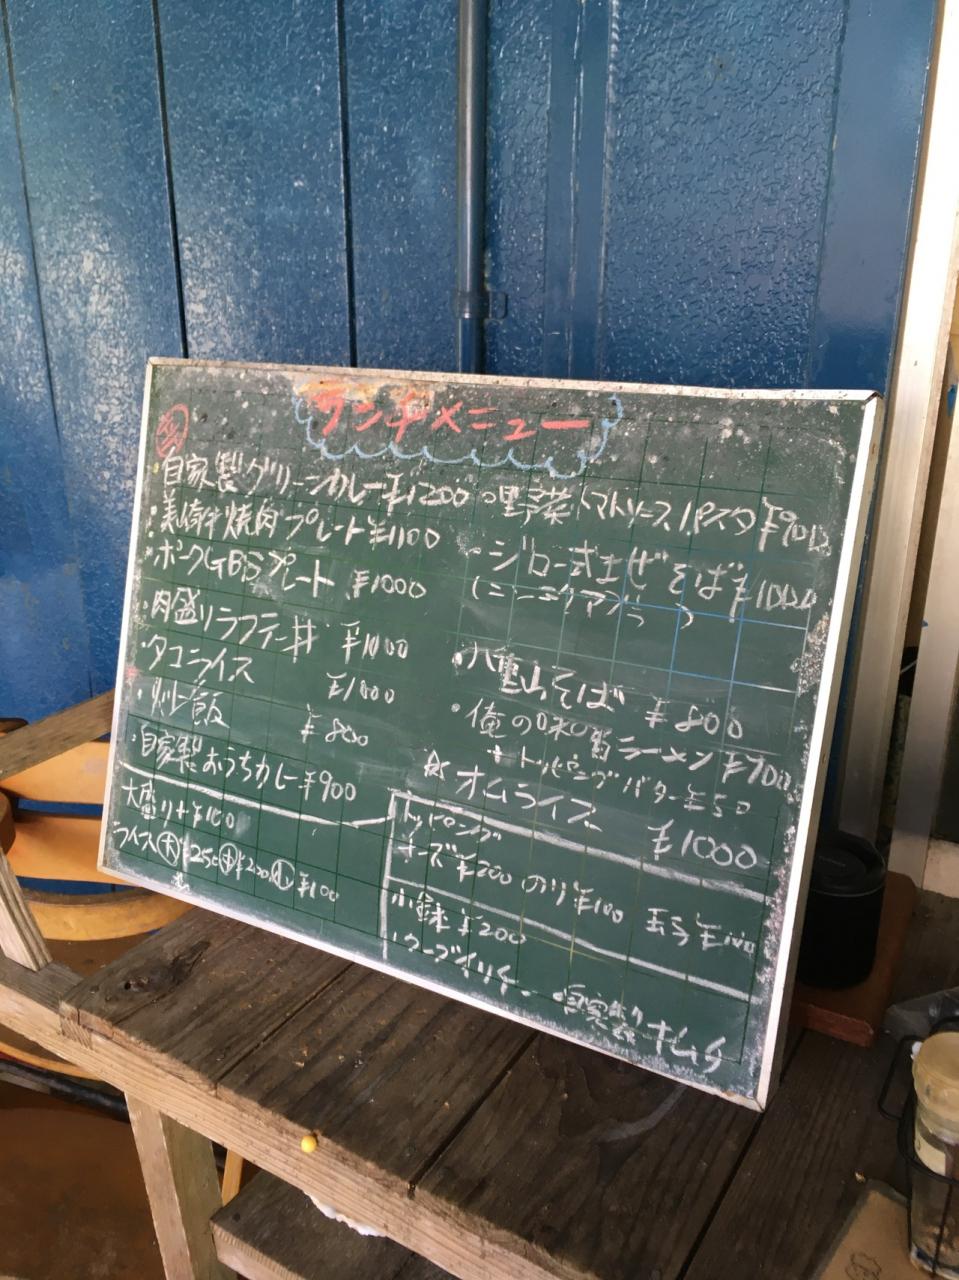 ランチメニュー
・自家製グリーンカレー ¥1200
・美崎牛焼肉プレート ¥1100
・ポークGBSプレート ¥1000
・肉盛りラフテー丼 ¥1000
・タコライス ¥1000
・炒飯 ¥800
・自家製おうちカレー ¥900
大盛り+¥100
ライス 大 ¥250 中 ¥200 小 ¥100
○野菜トマトソースパスタ ¥900
・ジロー式まぜそば ¥1000
・八重山そば ¥800
・俺の味噌ラーメン ¥900
+トッピングバター ¥50
☆オムライス ¥1000
トッピング
チーズ ¥200 のり ¥100 ¥100
小鉢 ¥200
自家製キムチ